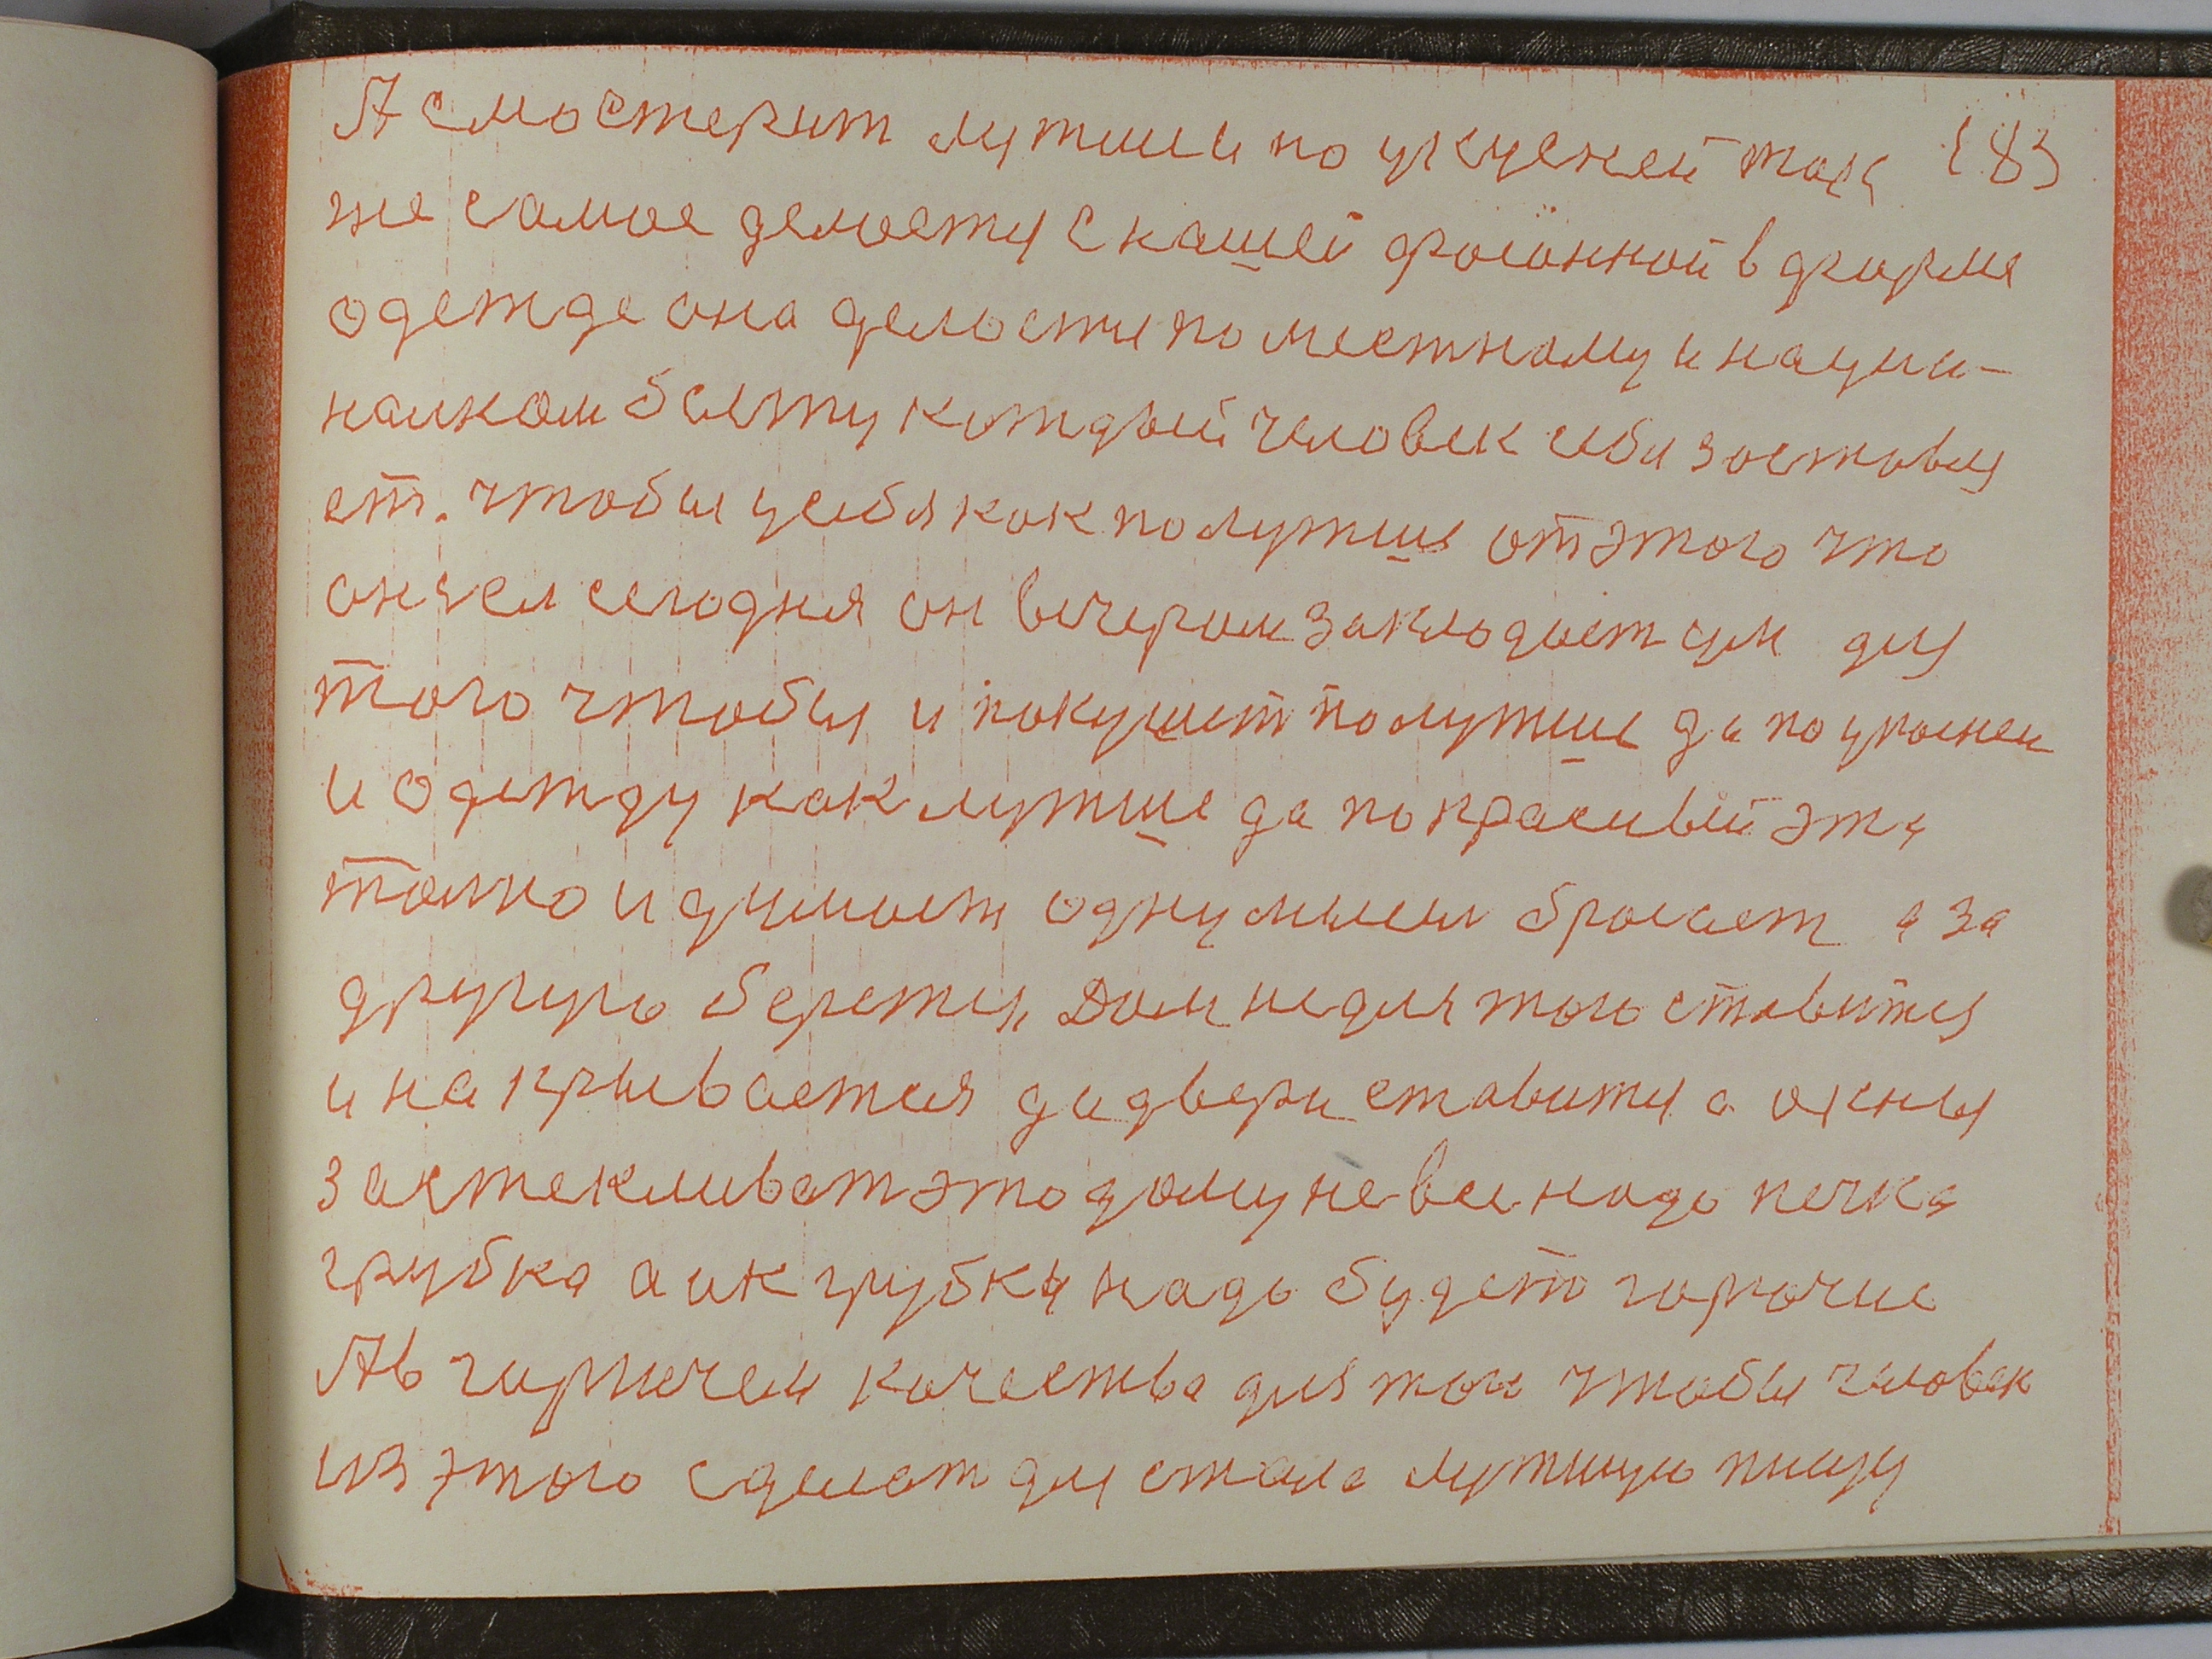 А смостерит лутши по укусней так 183
же самое делается с нашей фасонной в форме
одежде она делается по местному и нацыи-
налном быту каждый человек себя заставля
ет. чтобы у себя как по лутше от этого что
он ел сегодня он вечером закладает цел для
того чтобы и покушит по лутше да по уkусней
и одежду как лутше да по красивый эта
толко и думает одну мысел бросает а за
другую берется, Дом не для того ставится
и на крывается да двери ставится а окны
застекливат это дому не все надо печка
грубка а и к грубки надо будет горючие
А в горючем качества для того чтобы человек
из этого сделат для стола лутшую пищу